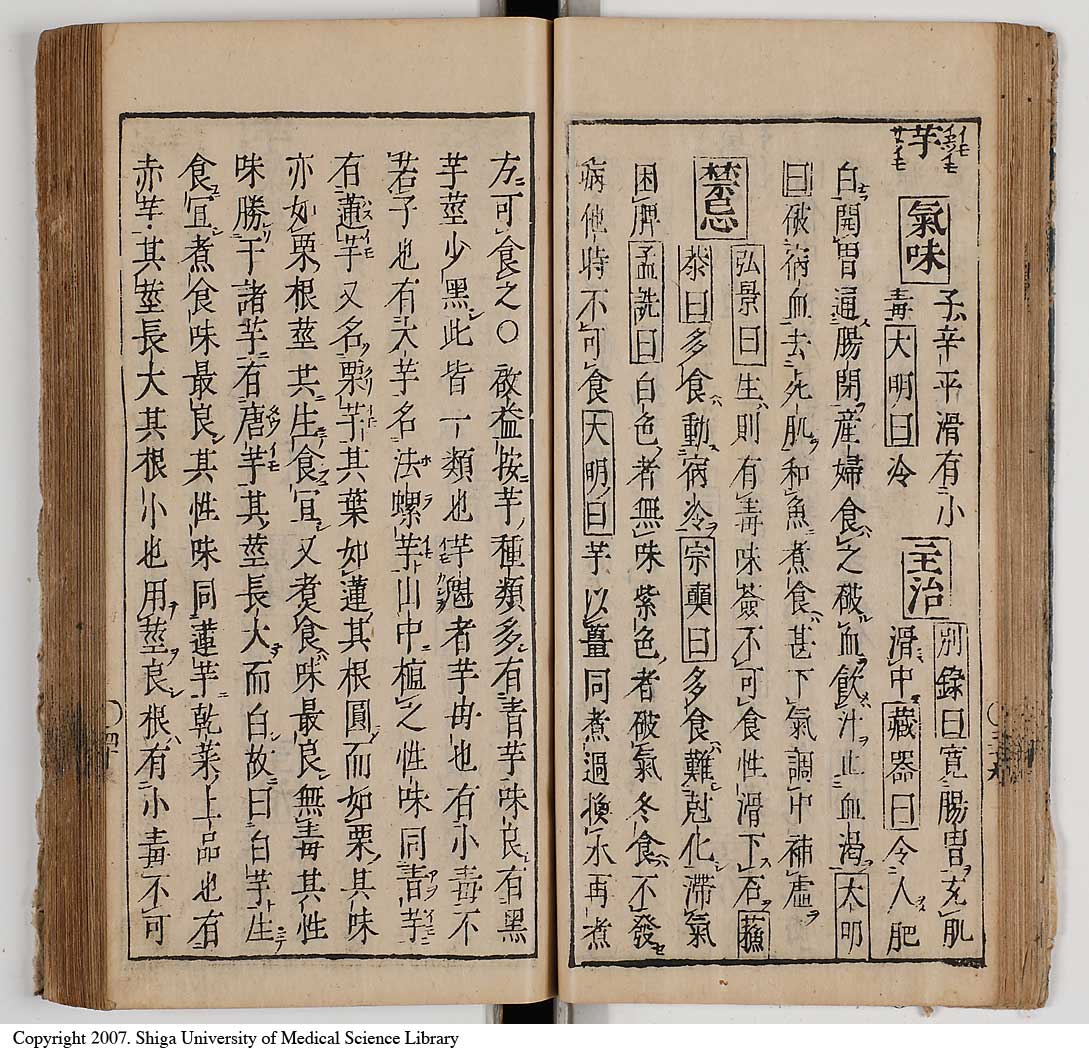 芋 氣味 子辛平滑有小毒 大明曰冷 主治 別錄曰寛腸胃充肌滑中 藏器曰令人肥
白開胃通腸閉産婦食之破血飲汁止血渴 大明
曰破宿血去死肌和魚煮食甚下氣調中補虛
禁忌 弘景曰生則有毒味莶不可食性滑下石 蘓
恭曰多食動病冷 宗奭曰多食難尅化滯氣
困脾 孟詵曰白色者無味紫色者破氣冬食不發
病他時不可食 大明曰芋以薑同煮過換水再煮
方可食之○啟益按芋種類多有青芋味良有黑
芋莖少黑此皆一類也芋魁者芋母也有小毒不
若子也有大芋名法螺芋山中植之性味同青芋
有蓮芋又名栗芋其葉如蓮其根圓而如栗其味
亦如栗根莖共生食宜又煮食味最良無毒其性
味勝于諸芋有唐芋其莖長大而白故曰白芋生
食宜煮食味最良其性味同蓮芋乾菜上品也有
赤芋其莖長大其根小也用莖良根有小毒不可
Copyright 2007. Shiga University of Medical Science Library